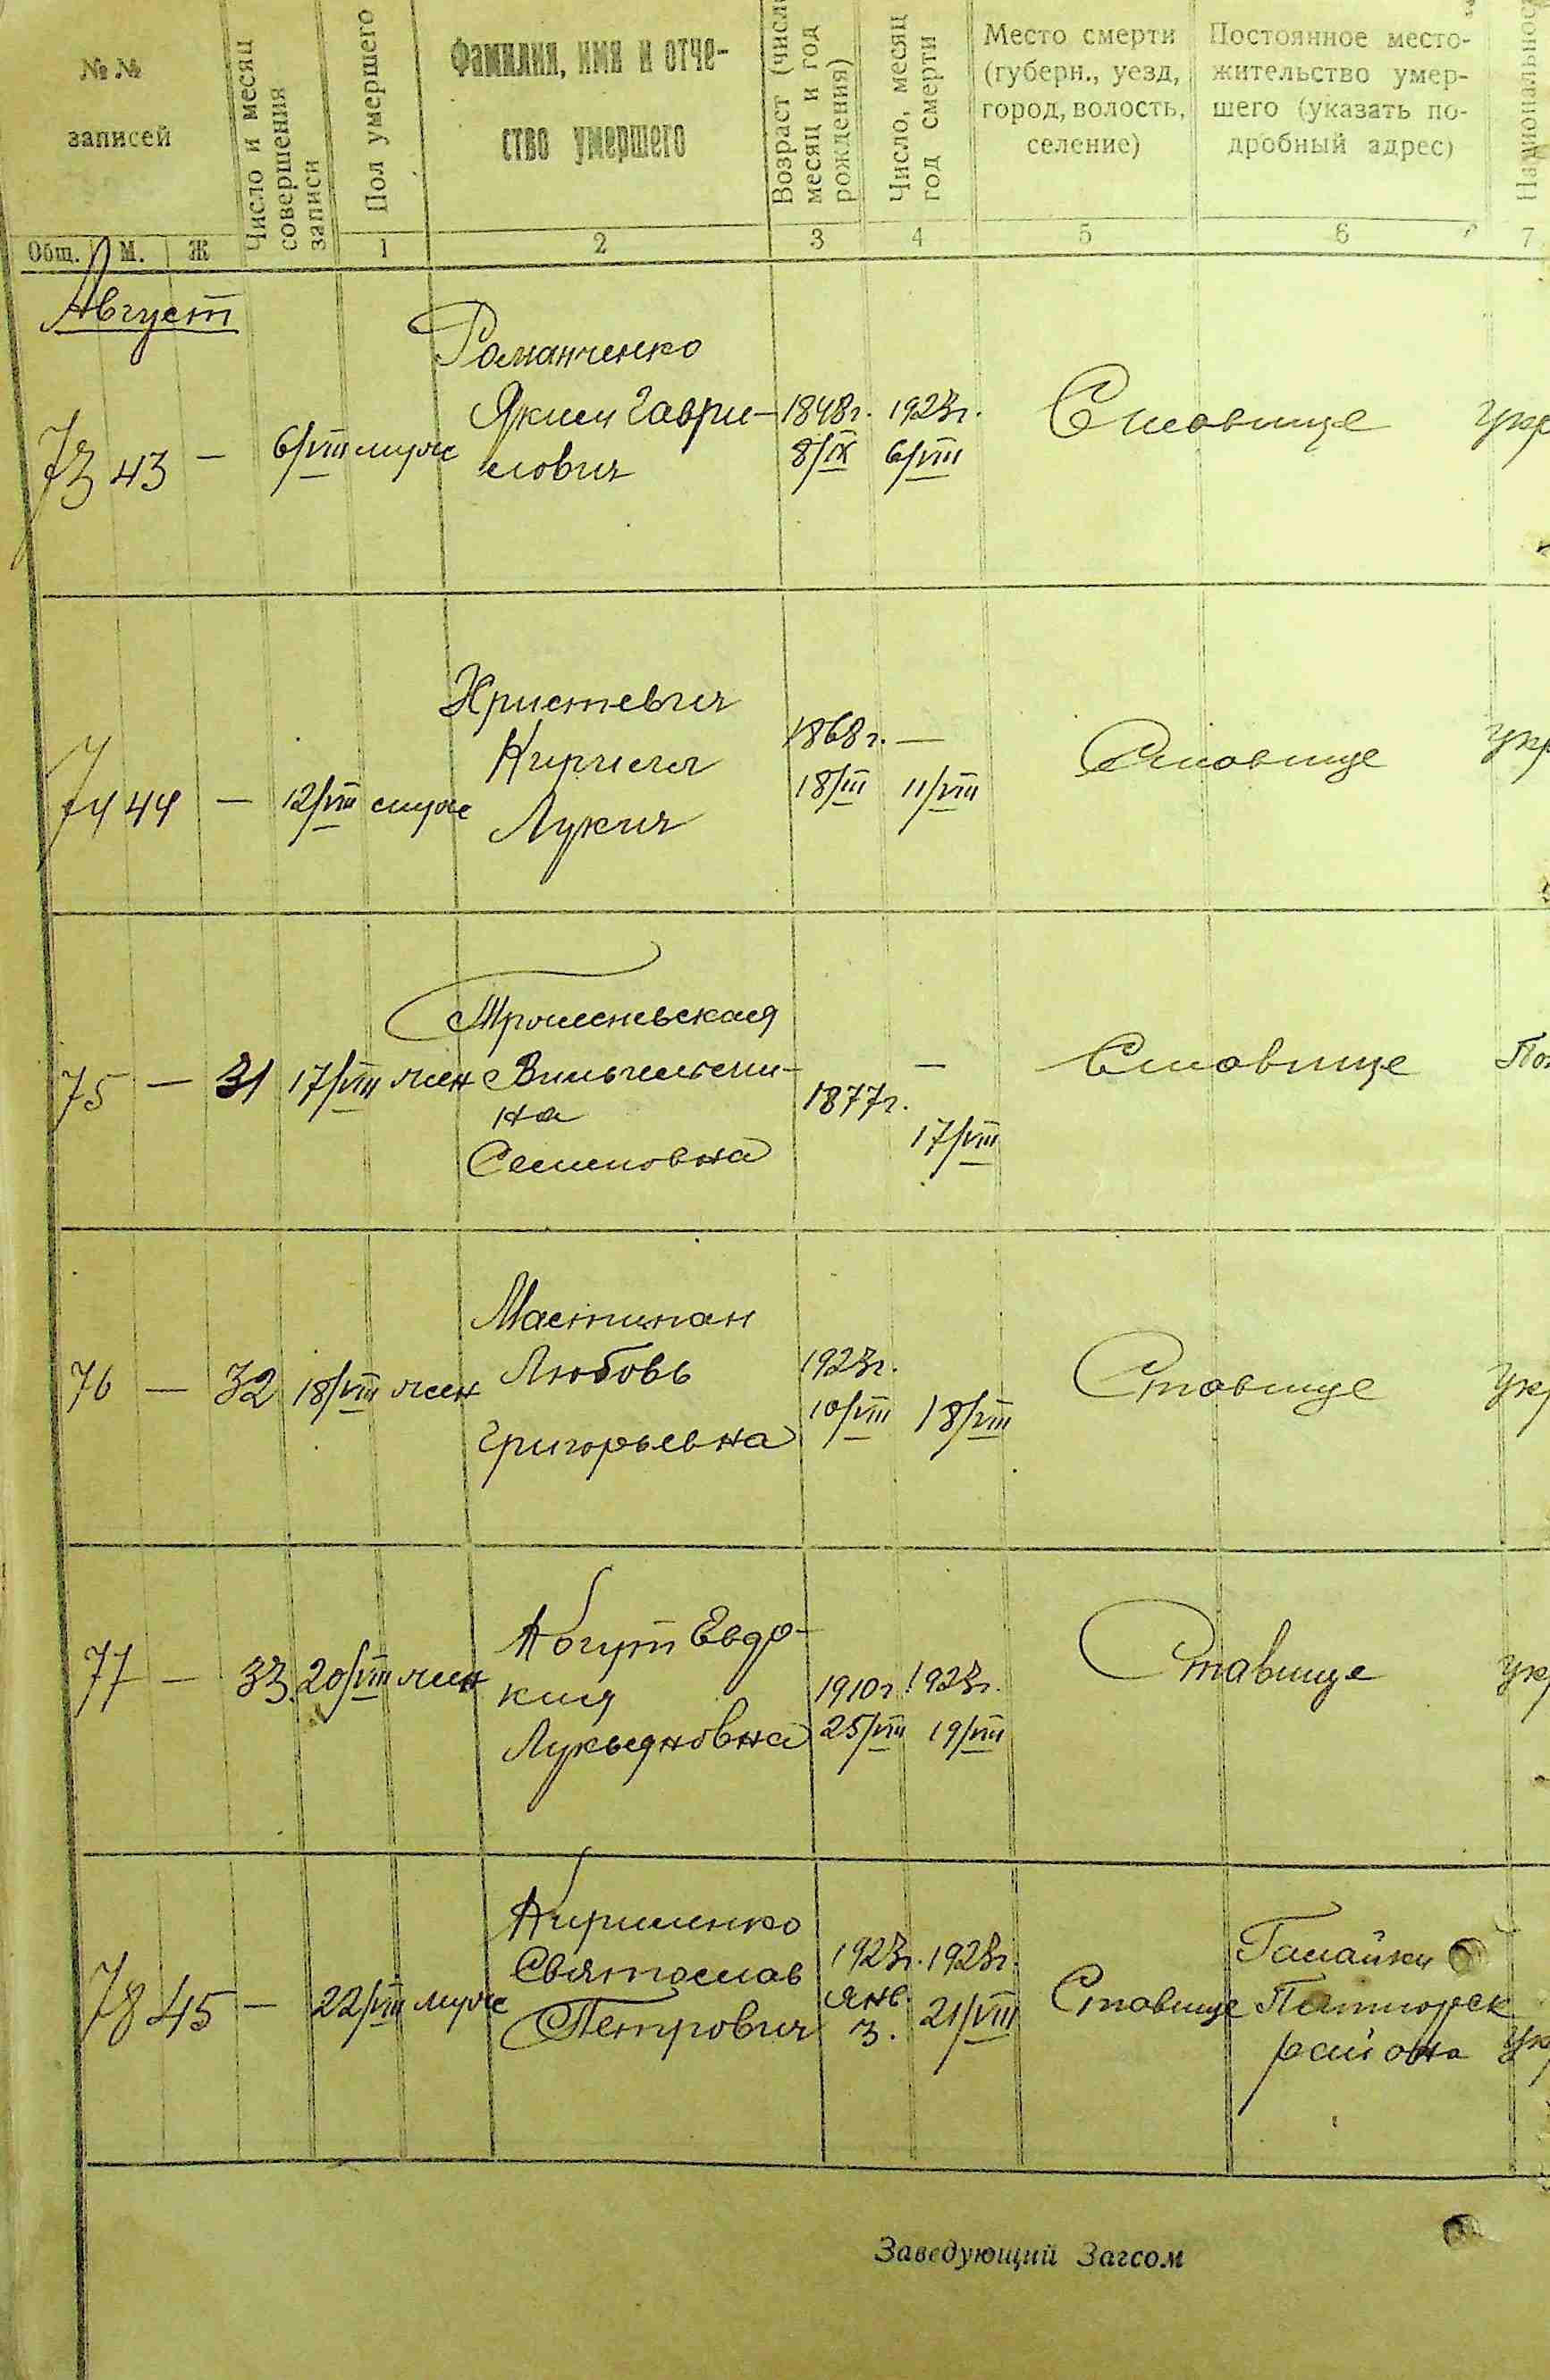 №№
записей
Общ. М. Ж
Число и месяц
совершения
записи
Пол умершего
1
Фамилия, имя и отче-
ство умершего
2
Возраст (число
месяц и год
рождения)
3
Число, месяц
год смерти
4
Место смерти
(губерн., уезд,
город, волость,
селение)
5
Постоянное место-
жительство умер-
шего (указать по-
дробный адрес)
6
Национальнос
7
Август
73 43 — 6/VIII муж
Романченко
Яким Гаври-
лович
1848г.
8/IX
1923г.
6/VIII
Ставище
укр
74 44 — 12/VIII муж
Христевич
Кирилл
Лукич
1868г.
18/III
—
11/VIII
Ставище
укр
75 — 31 17/VIII жен
Вильгельми-
на
Семеновна
1877г.
—
17/VIII
Ставище
Пол
76 — 32 18/VIII жен
Мастипан
Любовь
Григорьевна
1923г.
10/VIII
18/VIII
Ставище
укр
77 — 33 20/VIII жен
Евдо-
кия
Лукьяновна
1910г
25/VIII
1923г.
19/VIII
Ставище
укр
78 45 — 22/VIII муж
Кириленко
Святослав
Петрович
1923г.
янв.
3.
1923г.
21/VIII
Ставище
Галайки
района
укр
Заведующий Загсом